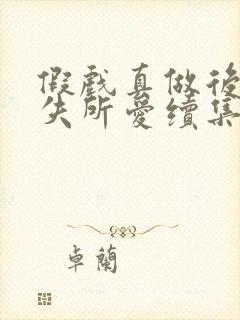 假戲真做後
失所愛續集
卓蘭